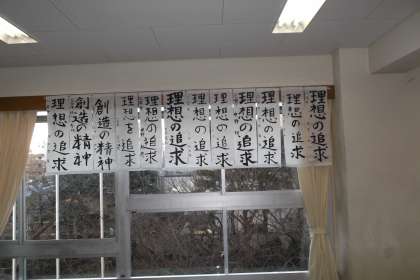 理想の追求
理想の追求
理想の追求
理想の追求
理想の追求
理想の追求
理想の追求
理想の追求
理想を追求
創造の精神
創造の精神
理想の追求